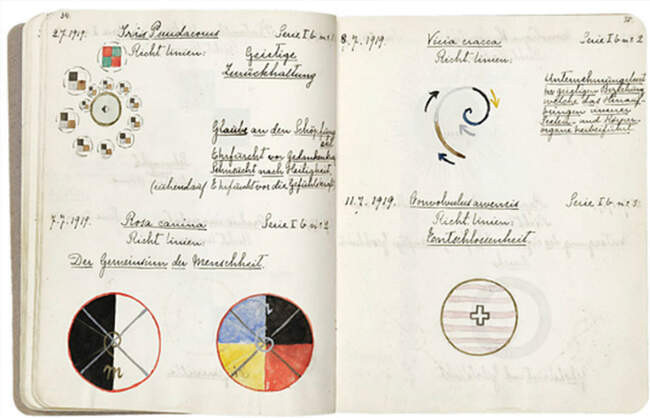 34.
2.7.1919. Iris Pseudacorus Serie I b. nr: 2
Richt Linien: Geistige
Zurückhaltung
Glaube an den Schöpfung
Ehrfurcht vor Gedanken
Sehnsucht nach Heiligkeit
Ehrfurcht vor die Gefühls
7.7.1919. Rosa canina Serie I b. nr: 2
Richt Linien:
Der Gemeinsinn der Menschheit.
m
8.7.1919. Vicia cracca Serie I b nr: 2
Richt Linien:
Unternehmungslust
der geistigen Beziehung
welche das
unserer
Seelen- und Körper-
organe herbeiführt
11.7.1919. Convolvulus arvensis Serie I b. nr:
Richt Linien:
Entschlossenheit